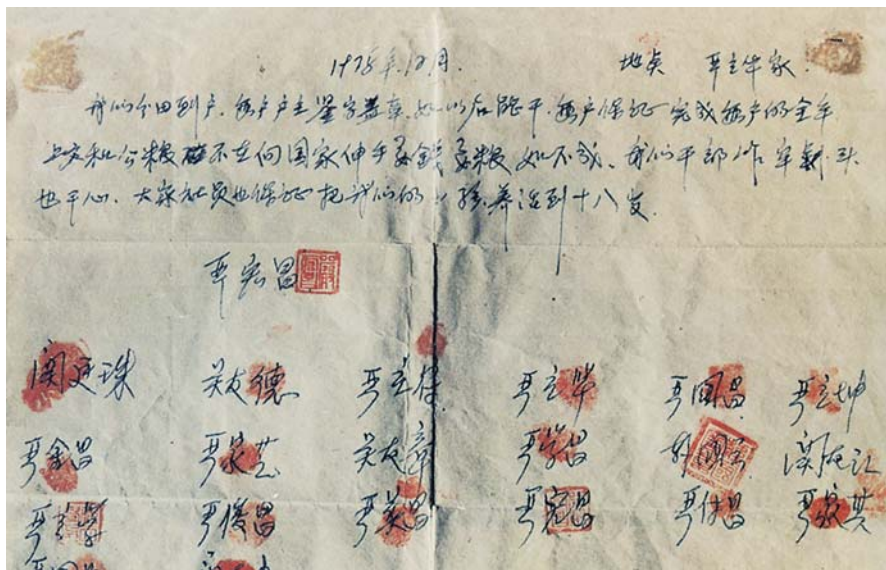 1978年12月. 地点 严立华家.
我们分田到户.每户户主签字盖章.如以后能干.每户保证完成每户的全年
上交和公粮.不在向国家伸手要钱要粮.如不成.我们干部作牢剎头
也干心.大家社员也保证把我们的小孩养活到十八岁.
严宏昌
关廷珠 关友德 严立符 严立华 严国昌 严立坤
严金昌 严家芝 关友章 严学昌 韩国云 关友江
严立学 严俊昌 严美昌 严宏昌 严付昌 严家其